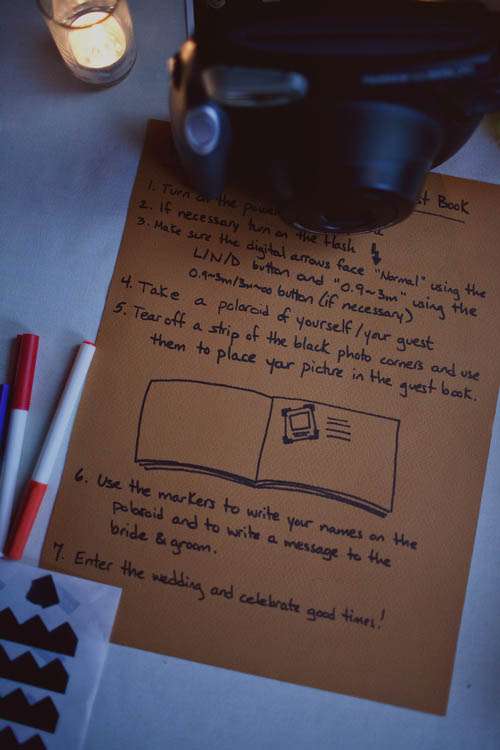 st Book
1. Turn on the power
2. If necessary turn on the flash
3. Make sure the digital arrows face "Normal" using the
L/N/D button and "0.9~3m" using the
0.9~3m/3m~∞ button (if necessary)
4. Take a polaroid of yourself/your guest
5. Tear off a strip of the black photo corners and use
them to place your picture in the guest book.
6. Use the markers to write your names on the
polaroid and to write a message to the
bride & groom.
7. Enter the wedding and celebrate good times!